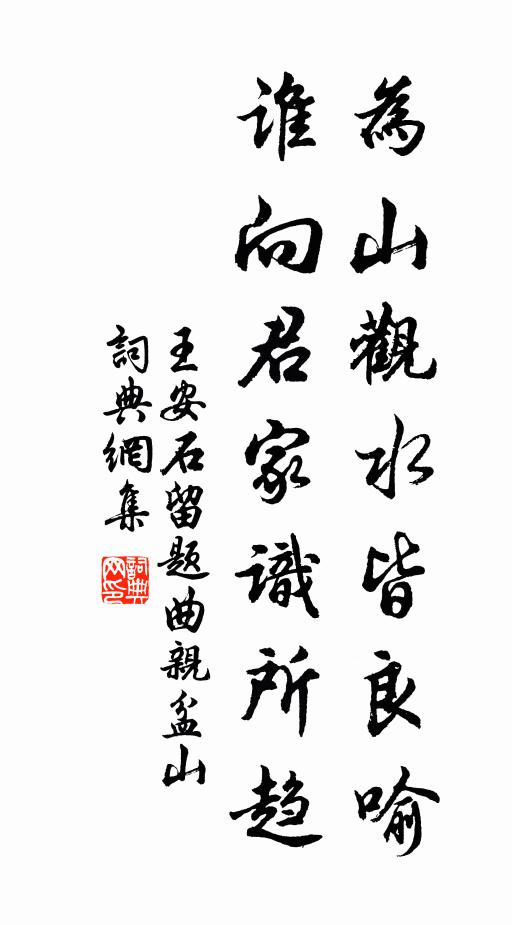 為山觀水皆良喻
誰向君家識所趨
王安石留題曲親盆山
詞典網集
詞典网印